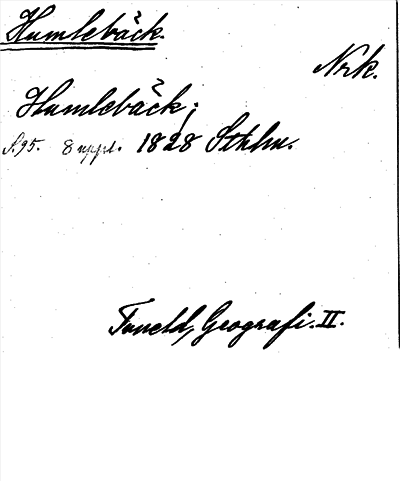 Humlebäck.
Nrk.
Humlebäck;
S. 95. 8 uppl. 1828 Sthlm.
Tuneld, Geografi. II.